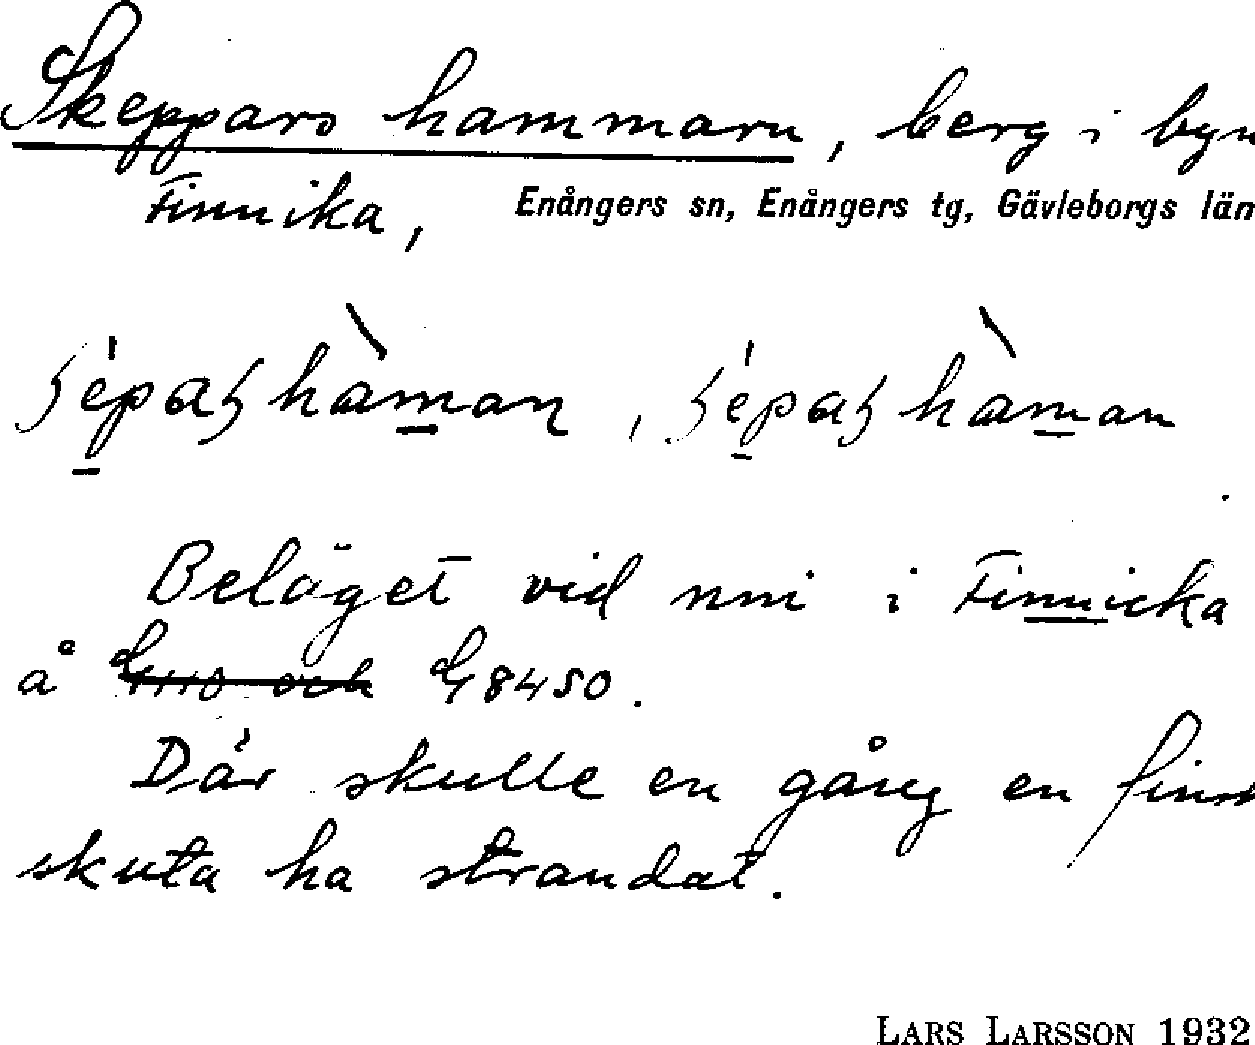 Skeppars hammarn, berg i byn
Finnika, Enångers sn, Enångers tg, Gävleborgs län
Beläget vid nni i Finnicka
å 8450.
Där skulle en gång en finsk
skuta ha strandat.
LARS LARSSON 1932